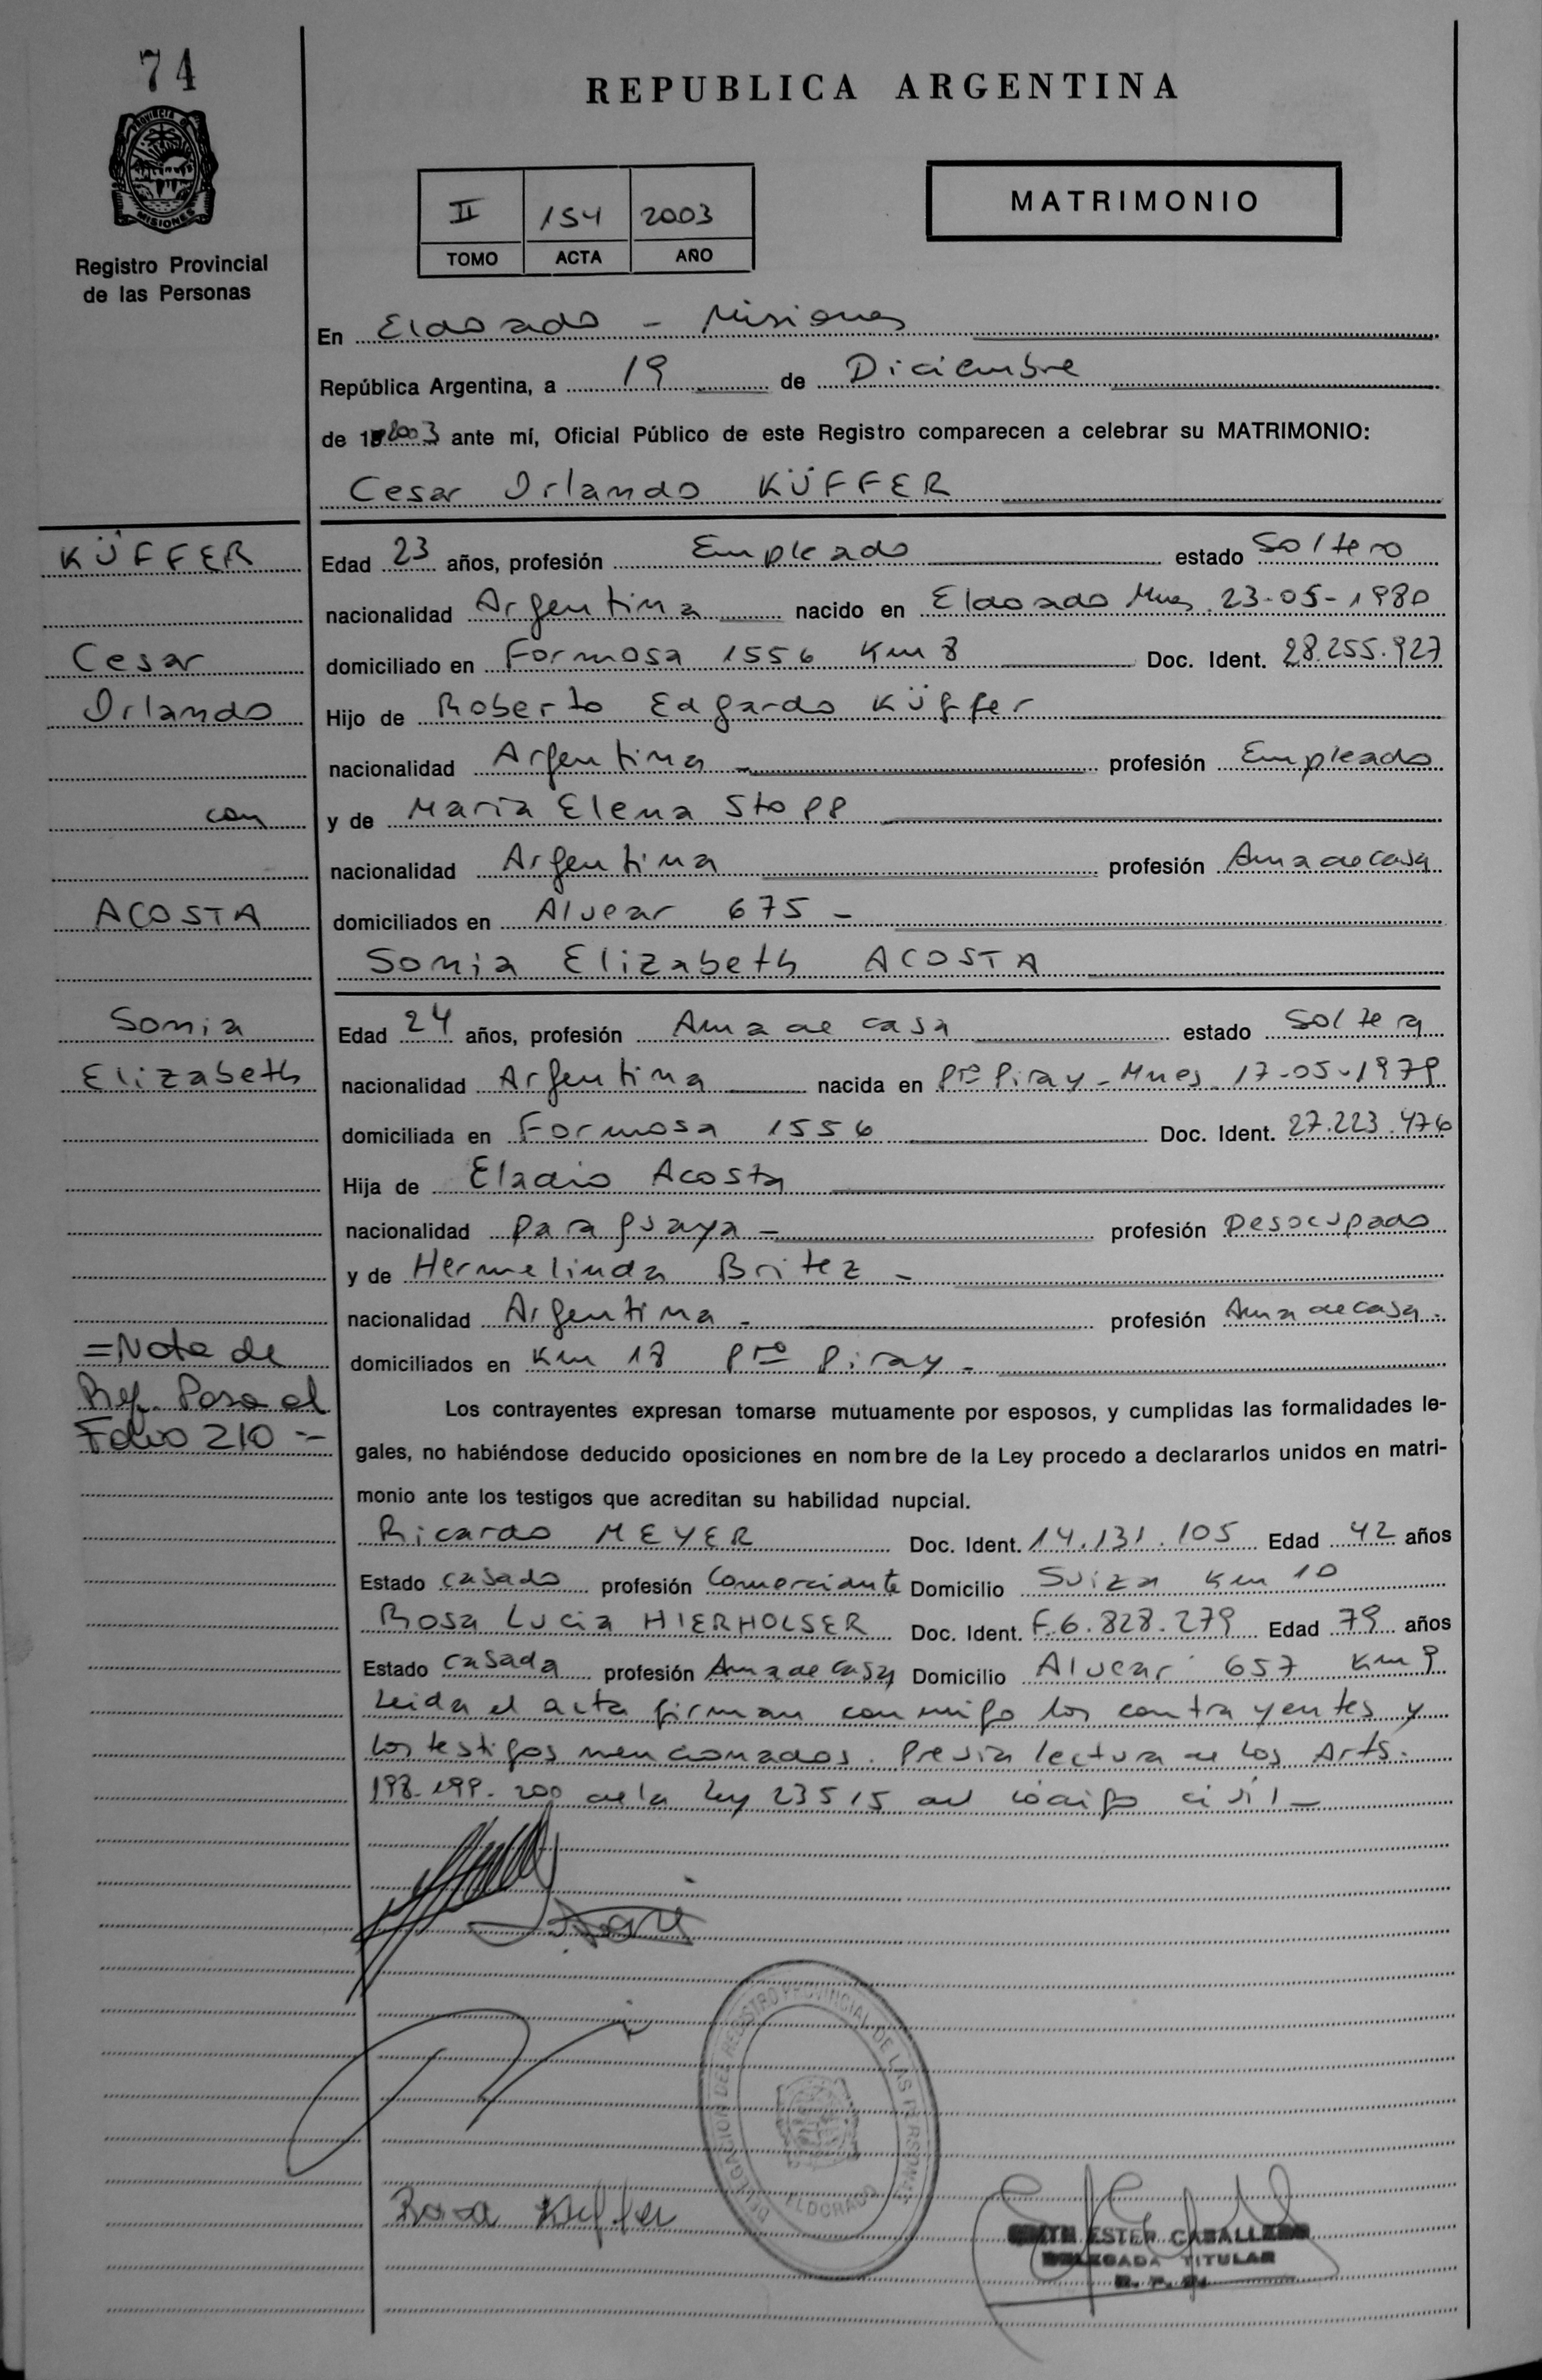 74
PROVINCIA DE
MISIONES
Registro Provincial
de las Personas
REPUBLICA ARGENTINA
II 154 2003
TOMO ACTA AÑO
MATRIMONIO
En Eldorado - Misiones
República Argentina, a 19 de Diciembre
de 2003 ante mí, Oficial Público de este Registro comparecen a celebrar su MATRIMONIO:
Cesar Orlando KÜFFER
KÜFFER
Edad 23 años, profesión Empleado estado Soltero
nacionalidad Argentina nacido en Eldorado Mnes 23-05-1980
Cesar
domiciliado en Formosa 1556 Km 8 Doc. Ident. 28.255.927
Orlando
Hijo de Roberto Edgardo Küffer
nacionalidad Argentina - profesión Empleado
con
y de Maria Elena Stopp
nacionalidad Argentina profesión Ama de Casa
ACOSTA
domiciliados en Alvear 675 -
Sonia Elizabeth ACOSTA
Sonia
Edad 24 años, profesión Ama de casa estado Soltera
Elizabeth
nacionalidad Argentina nacida en Pto Piray - Mnes 17-05-1979
domiciliada en Formosa 1556 Doc. Ident. 27.223.476
Hija de Eladio Acosta
nacionalidad paraguaya - profesión Desocupado
y de Hermelinda Britez -
nacionalidad Argentina - profesión Ama de Casa -
=Nota de
domiciliados en Km 18 Pto Piray -
Ref. Pasa al
Folio 210 =-
Los contrayentes expresan tomarse mutuamente por esposos, y cumplidas las formalidades le-
gales, no habiéndose deducido oposiciones en nombre de la Ley procedo a declararlos unidos en matri-
monio ante los testigos que acreditan su habilidad nupcial.
Ricardo MEYER Doc. Ident. 14.131.105 Edad 42 años
Estado Casado profesión Comerciante Domicilio Suiza Km 10
Rosa Lucia HIERHOLSER Doc. Ident. F.6.828.279 Edad 79 años
Estado Casada profesión Ama de Casa Domicilio Alvear 657 Km 9
Leida el acta firman conmigo los contrayentes y
los testigos mencionados. Previa lectura de los Arts.
198-199-200 de la Ley 23515 del código civil -
DELEGACION DEL REGISTRO PROVINCIAL DE LAS PERSONAS
ELDORADO
Rosa Küffer
ESTER CABALLERO
DELEGADA TITULAR
R. P. P.